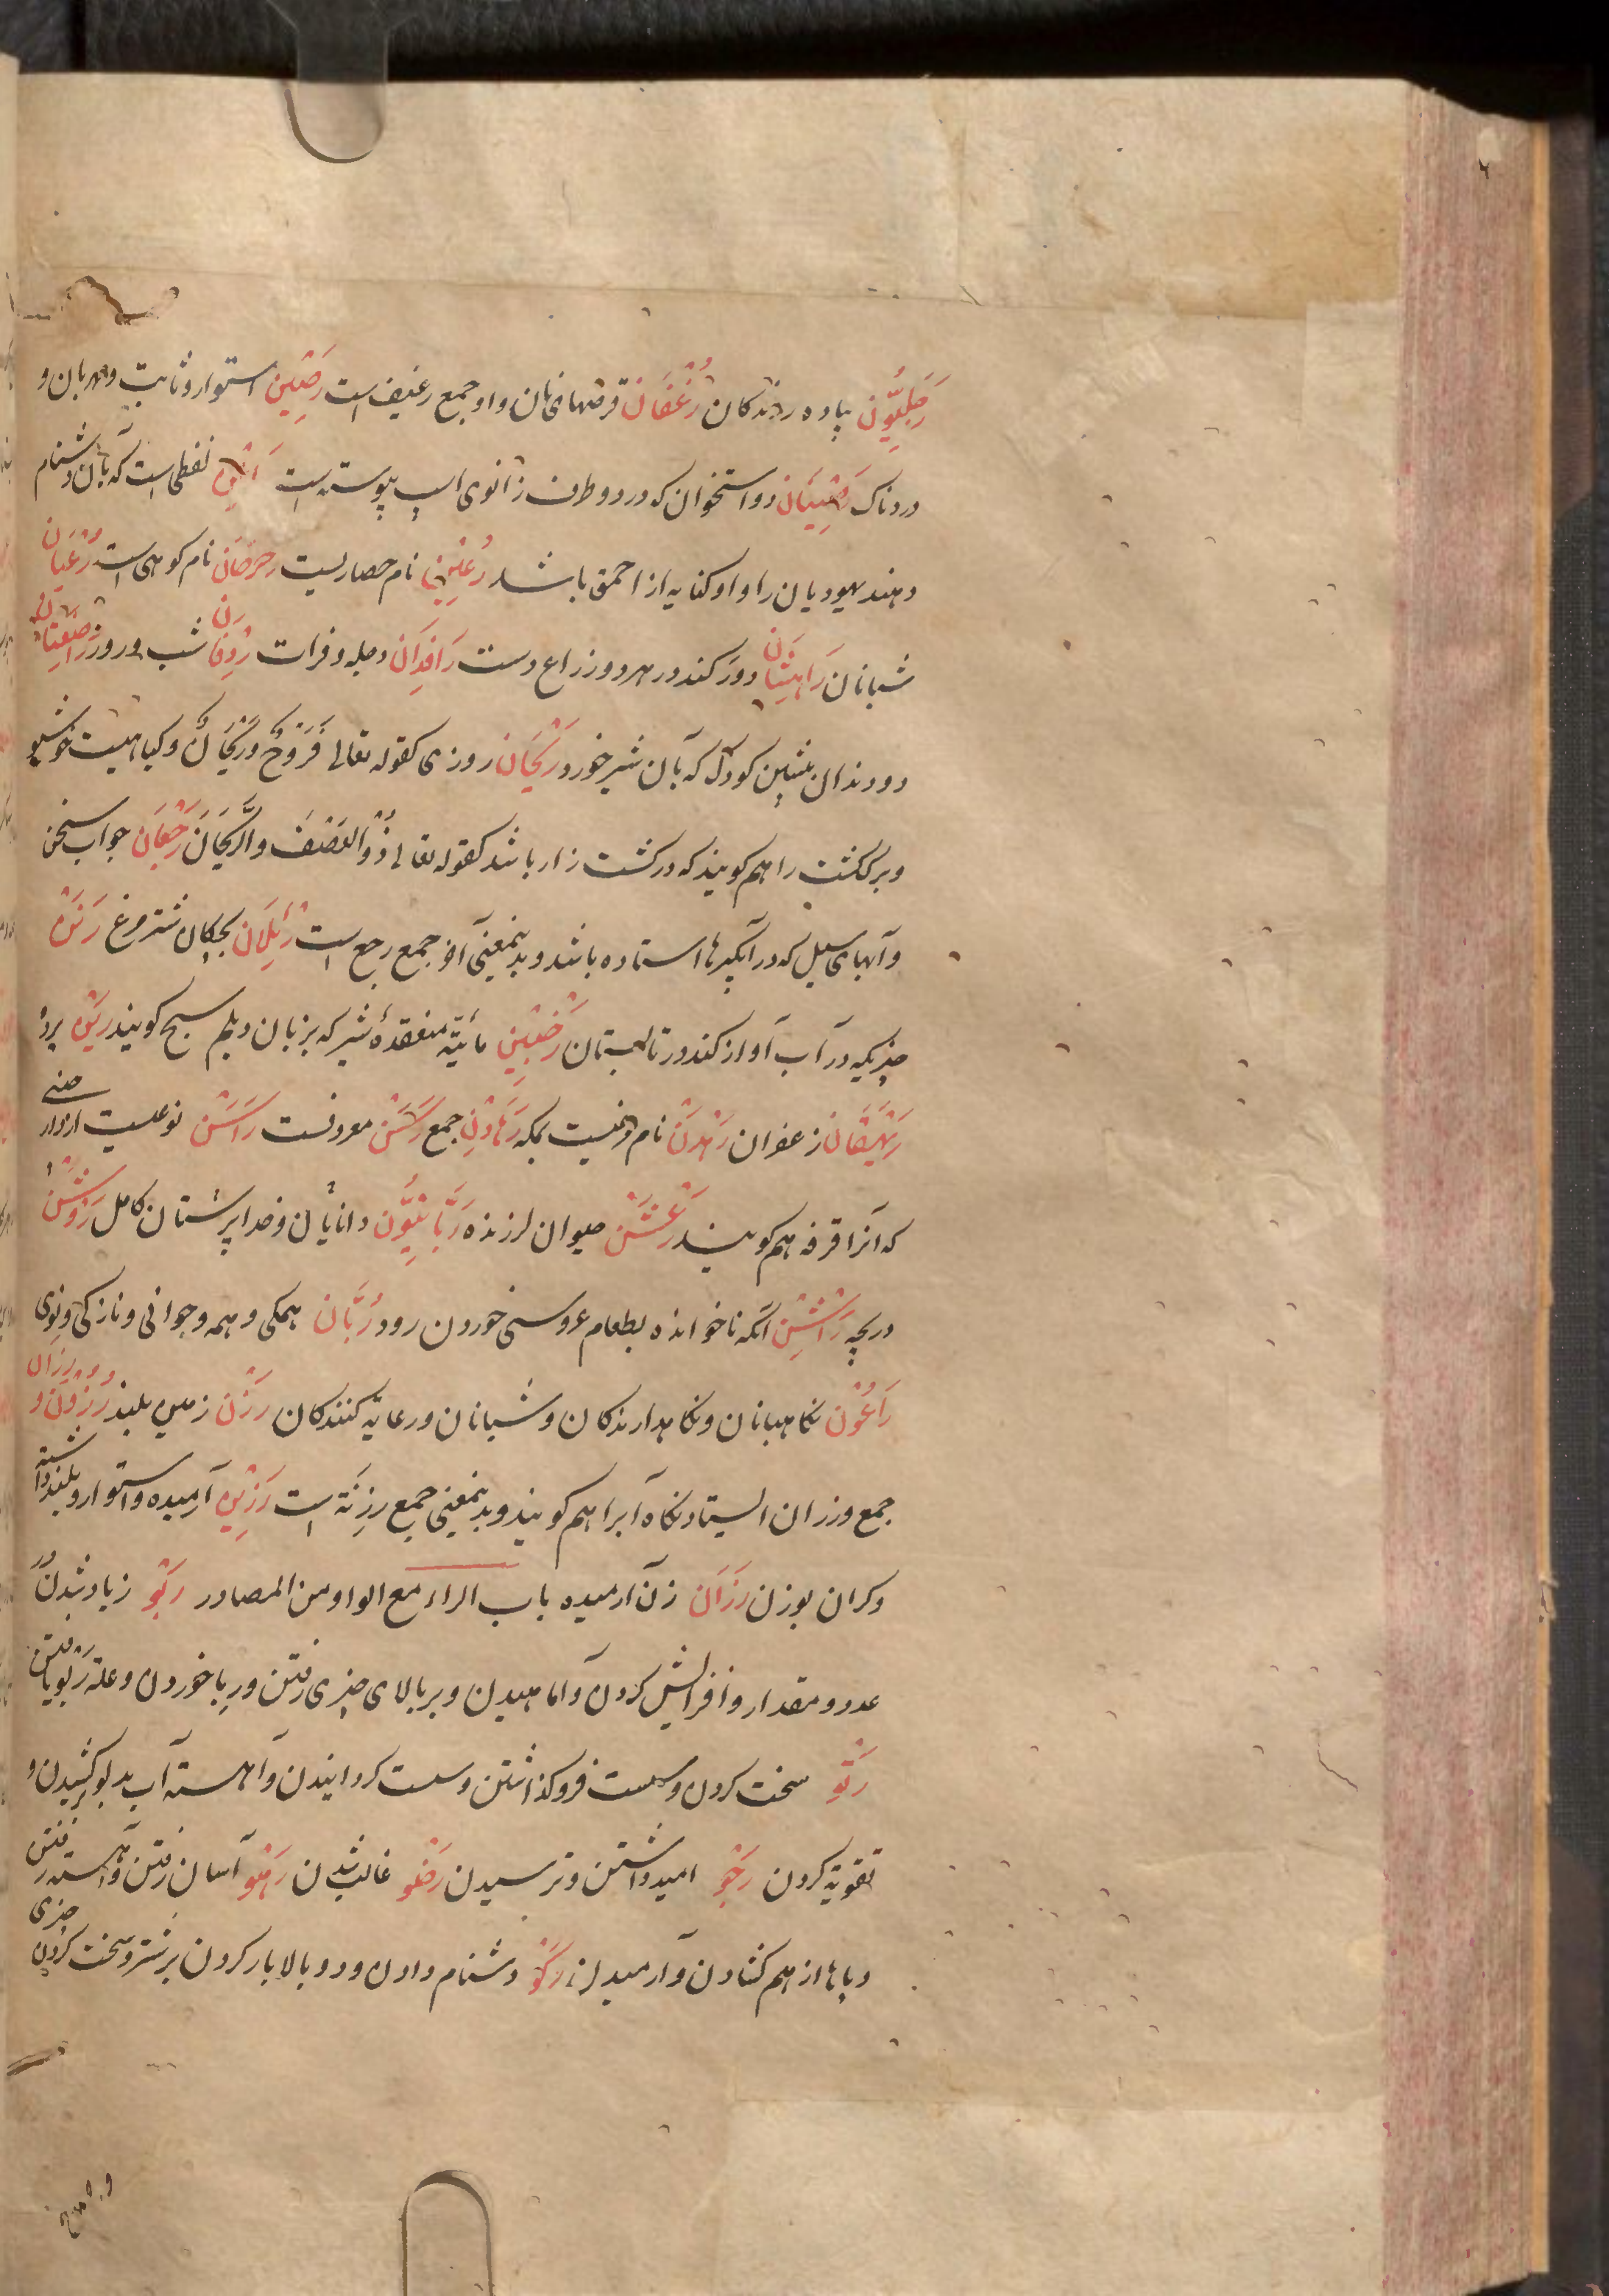 رَجِلِیُّون پیاده روندکان رُغْفَان قرصهای نان و او جمع رغیف است رَصِین استوار و ثابت و مهربان و
دردناک رَضِیَّان دو استخوان که در دو طرف زانوی اسپ پیوسته است لفظی است که بآن دشنام
دهند یهودیان را و او کنایه از احمق باشد رُعَین نام حصاریست رحرحان نام کوهی است رُعْیَان
شبانان رَاهِشَان دو رک اند در هر دو ذراع دست رَافِدَان دجله و فرات رِدْفَان شب و روز رَاضِعَتَان
دو دندان پیشین کودک که بآن شیر خورد رَیْحَان روزی کقوله تعالی فَرَوْحٌ وَرَیْحَانٌ و کیاهیست خوشبو
و برک کشت را هم کویند که در کشت زار باشد کقوله تعالی ذُو الْعَصْفِ وَالرَّیْحَانِ رَجْعَان جواب سخن
و آبهای سیل که در آبگیرها استاده باشد و بدینمعنی آخر جمع رجع است رِئْلَان بچکان شترمرغ رَنَن
چیزیکه در آب آواز کند در تابستان رَخْبِین مائیّه منعقدهٔ شیر که بزبان دیلم سیح کویند رَیْن پرده
رَیْهَقَان زعفران رَهْدَن نام مرغیست بمکه رَهَادِن جمع رَسَن معروفست رَاسَن نوعیست از دار چینی
که آنرا قرفه هم کویند رَعْشَن حیوان لرزنده رَبَّانِیُّون دانایان و خدا پرستان کامل رَوْشَن
دریچه رَاشِن آنکه ناخوانده بطعام عروسی خوردن رود رُبَّان همکی و همه و جوانی و نازکی و نوی
رَاعُون نکاهبانان و نکاهدارندکان و شبانان و رعایة کنندکان رَزْن زمین بلند رُزُون و رِزَان
جمع و رزان ایستادنکاه آبرا هم کویند و بدینمعنی جمع رِزْنَة است رَزِین آرمیده و استوار و بلند داشته
و کران بوزن رَزَان زن آرمیده باب الراء مع الواو من المصادر رَبْو زیاد شدن در
عدد و مقدار و افزایش کردن و آماهیدن و بر بالای چیزی رفتن و ربا خوردن و علة ربو یافتن
رَتْو سخت کردن و سست فروکذاشتن و سست کردانیدن و آهسته آب بدلو برکشیدن و
تقویة کردن رَجْو امید داشتن و ترسیدن رَضْو غالب شدن رَهْو آسان رفتن و آهسته رفتن
و پاها از هم کشادن و آرمیدن رَکْو دشنام دادن و دو بالا بار کردن بر شتر و سخت کردن چیزی